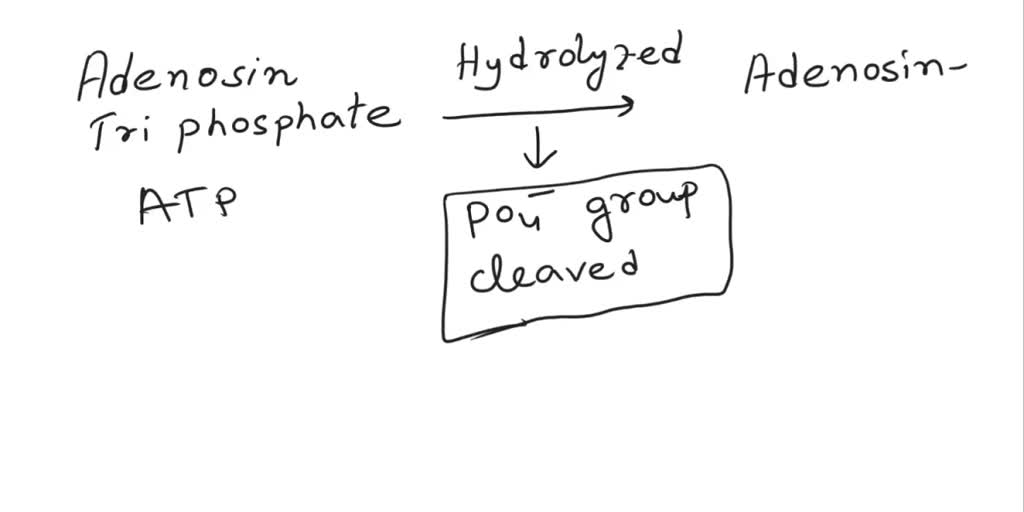 Adenosin
Tri phosphate
ATP
Hydrolyzed
PO4⁻ group
cleaved
Adenosin-